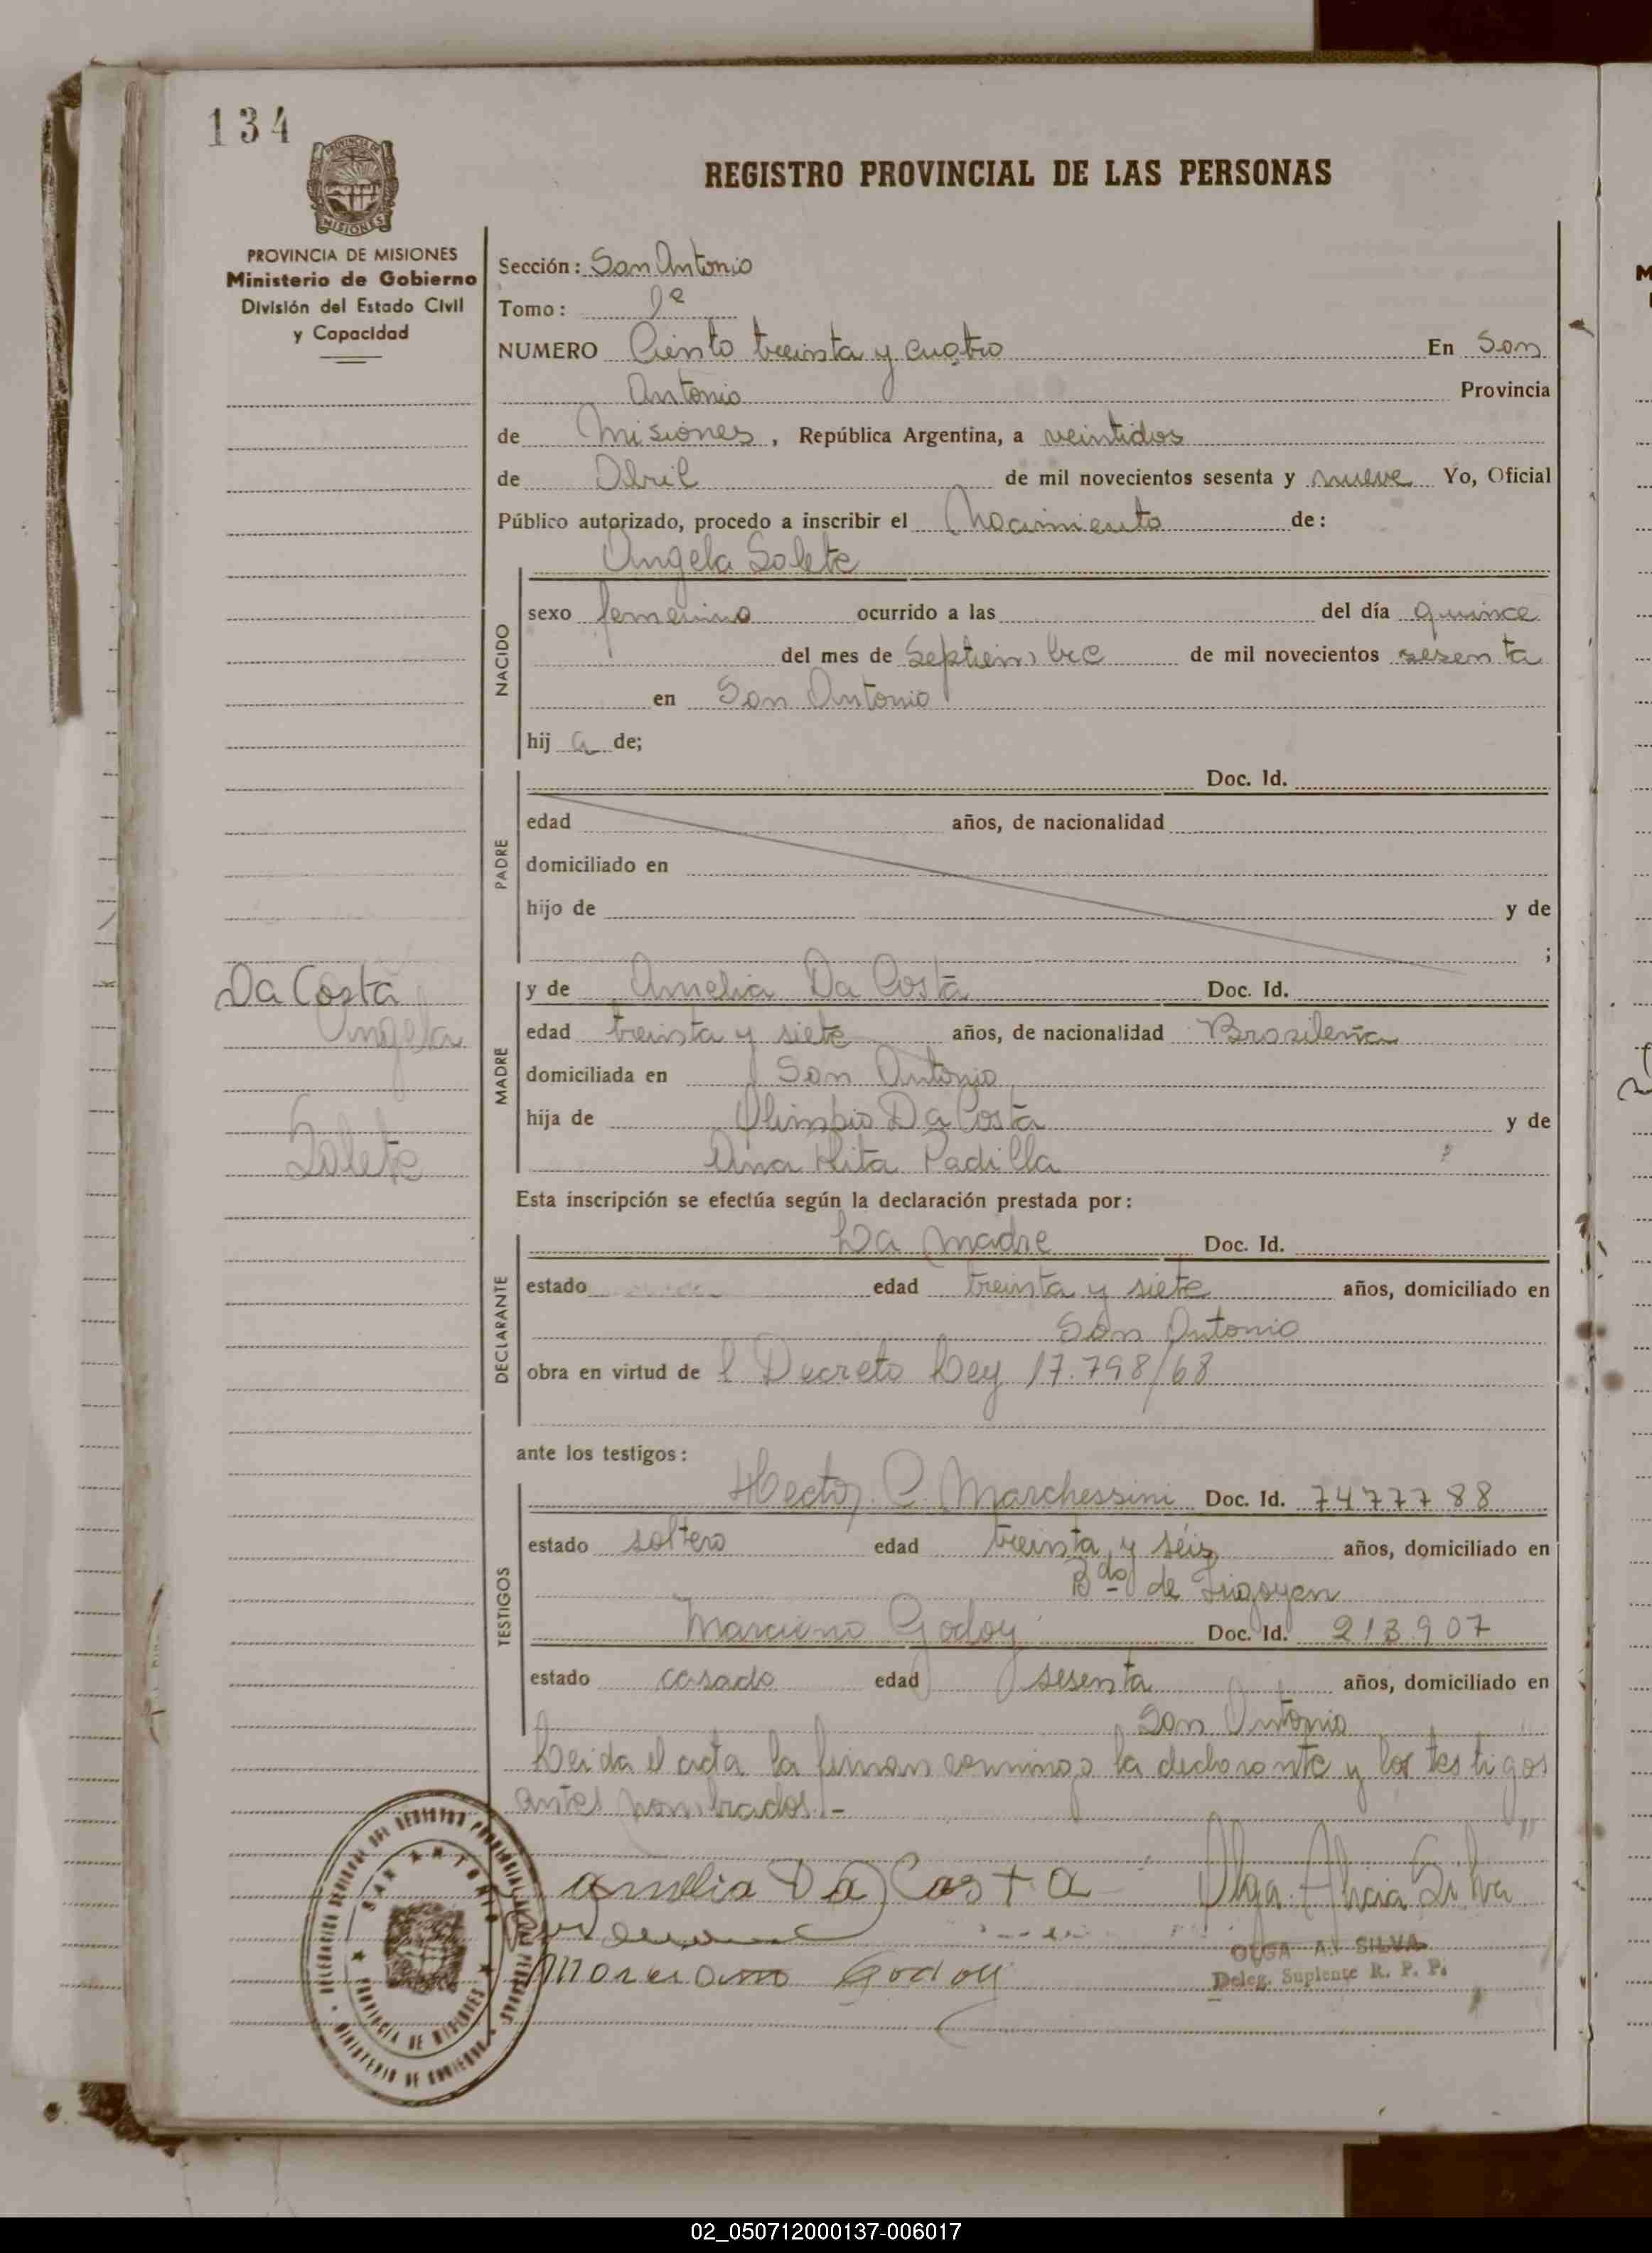 134
PROVINCIA DE MISIONES
Ministerio de Gobierno
División del Estado Civil
y Capacidad
REGISTRO PROVINCIAL DE LAS PERSONAS
Sección: San Antonio
Tomo: 1º
NUMERO Ciento treinta y cuatro En San
Antonio Provincia
de Misiones, República Argentina, a veintidos
de Abril de mil novecientos sesenta y nueve Yo, Oficial
Público autorizado, procedo a inscribir el Nacimiento de:
Angela Solete
NACIDO
sexo femenino ocurrido a las del día quince
del mes de Septiembre de mil novecientos sesenta
en San Antonio
hij a de;
PADRE
Doc. Id.
edad años, de nacionalidad
domiciliado en
hijo de y de
;
Da Costa
Angela
Solete
MADRE
y de Amelia Da Costa Doc. Id.
edad treinta y siete años, de nacionalidad Brasileña
domiciliada en San Antonio
hija de Olimpio Da Costa y de
Ana Rita Padilla
Esta inscripción se efectúa según la declaración prestada por:
DECLARANTE
La madre Doc. Id.
estado edad treinta y siete años, domiciliado en
San Antonio
obra en virtud de l Decreto Ley 17.798/68
ante los testigos:
TESTIGOS
Hector C. Marchessini Doc. Id. 7477788
estado soltero edad treinta y séis años, domiciliado en
Bdo de Irigoyen
Marciano Godoy Doc. Id. 213.907
estado casado edad sesenta años, domiciliado en
San Antonio
Leida el acta la firman conmigo la declarante y los testigos
antes nombrados.-
Amelia Da Costa Olga Alicia Silva
OLGA A. SILVA
Deleg. Suplente R. P. P.
Marciano Godoy
SAN ANTONIO
PROVINCIA DE MISIONES
MINISTERIO DE GOBIERNO
02_050712000137-006017